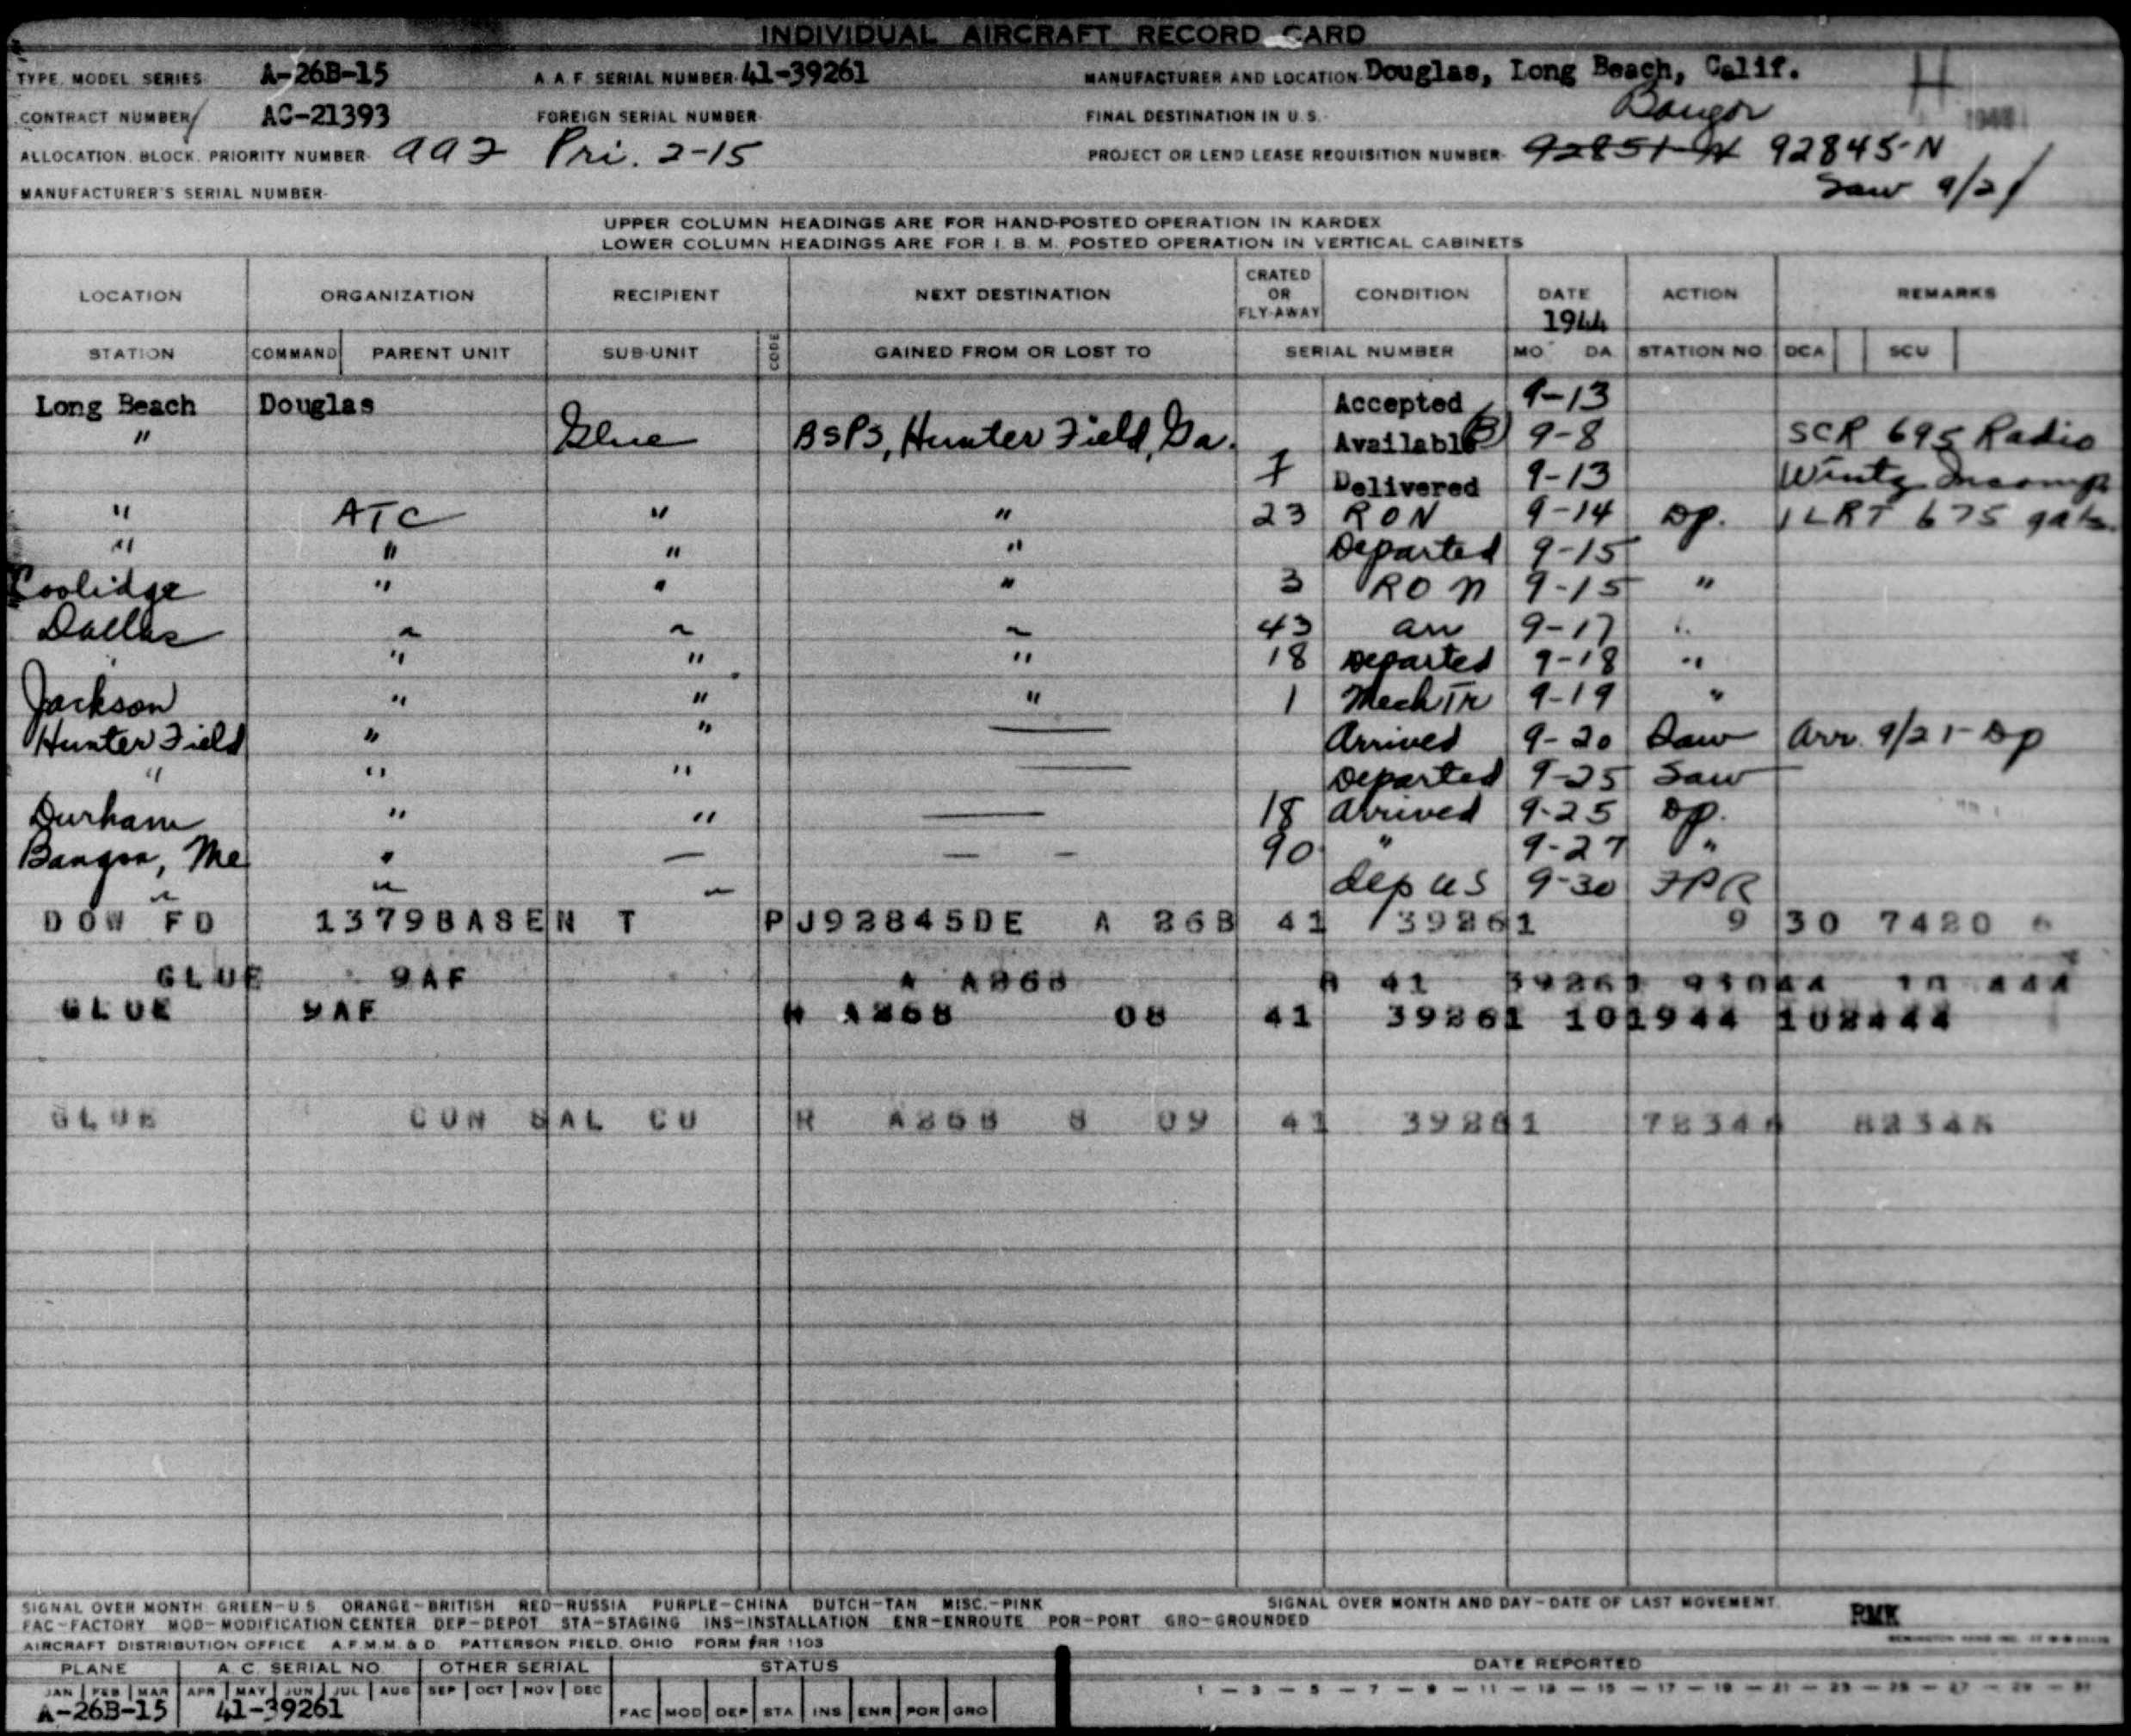 INDIVIDUAL AIRCRAFT RECORD CARD
TYPE, MODEL, SERIES A-26B-15 A.A.F. SERIAL NUMBER- 41-39261 MANUFACTURER AND LOCATION- Douglas, Long Beach, Calif. H
CONTRACT NUMBER AC-21393 FOREIGN SERIAL NUMBER- FINAL DESTINATION IN U.S.- Bangor
ALLOCATION, BLOCK, PRIORITY NUMBER- 992 Pri. 2-15 PROJECT OR LEND LEASE REQUISITION NUMBER- 92851-N 92845-N
MANUFACTURER'S SERIAL NUMBER- Saw 9/21
UPPER COLUMN HEADINGS ARE FOR HAND-POSTED OPERATION IN KARDEX
LOWER COLUMN HEADINGS ARE FOR I. B. M. POSTED OPERATION IN VERTICAL CABINETS
LOCATION ORGANIZATION RECIPIENT NEXT DESTINATION CRATED OR FLY-AWAY CONDITION DATE 1944 ACTION REMARKS
STATION COMMAND PARENT UNIT SUB-UNIT CODE GAINED FROM OR LOST TO SERIAL NUMBER MO DA STATION NO. DCA SCU
Long Beach Douglas Accepted 9-13
" Glue BSPS, Hunter Field, Ga. Available 9-8 SCR 695 Radio
7 Delivered 9-13 Wintz Incomp
" ATC " " 23 RON 9-14 Dp. 1 LRT 675 gals.
" " " " Departed 9-15
Coolidge " " " 3 RON 9-15 "
Dallas " " " 43 arr 9-17 "
" " " 18 Departed 9-18 "
Jackson " " " 1 Mech Tr 9-19 "
Hunter Field " " — Arrived 9-20 Saw Arr. 9/21-Dp
" " " — Departed 9-25 Saw
Durham " " — 18 Arrived 9-25 Dp.
Bangor, Me " — — — 90 " 9-27 "
" " — dep US 9-30 FPR
DOW FD 1379BASEN T PJ92845DE A 26B 41 39261 9 30 7420 6
GLUE 9AF A A26B A 41 39261 93044 10 444
GLUE 9AF A26B 08 41 39261 101944 102444
GLUE CON SAL CU R A26B 8 09 41 39261
SIGNAL OVER MONTH: GREEN-U.S. ORANGE-BRITISH RED-RUSSIA PURPLE-CHINA DUTCH-TAN MISC.-PINK SIGNAL OVER MONTH AND DAY-DATE OF LAST MOVEMENT.
FAC-FACTORY MOD-MODIFICATION CENTER DEP-DEPOT STA-STAGING INS-INSTALLATION ENR-ENROUTE POR-PORT GRO-GROUNDED RMK
AIRCRAFT DISTRIBUTION OFFICE A.F.M.M. & D. PATTERSON FIELD, OHIO FORM #RR 1103
PLANE A. C. SERIAL NO. OTHER SERIAL STATUS DATE REPORTED
JAN FEB MAR APR MAY JUN JUL AUG SEP OCT NOV DEC 1 — 3 — 5 — 7 — 9 — 11 — 13 — 15 — 17 — 19 — 21 — 23 — 25 — 27 — 29 — 31
A-26B-15 41-39261 FAC MOD DEP STA INS ENR POR GRO